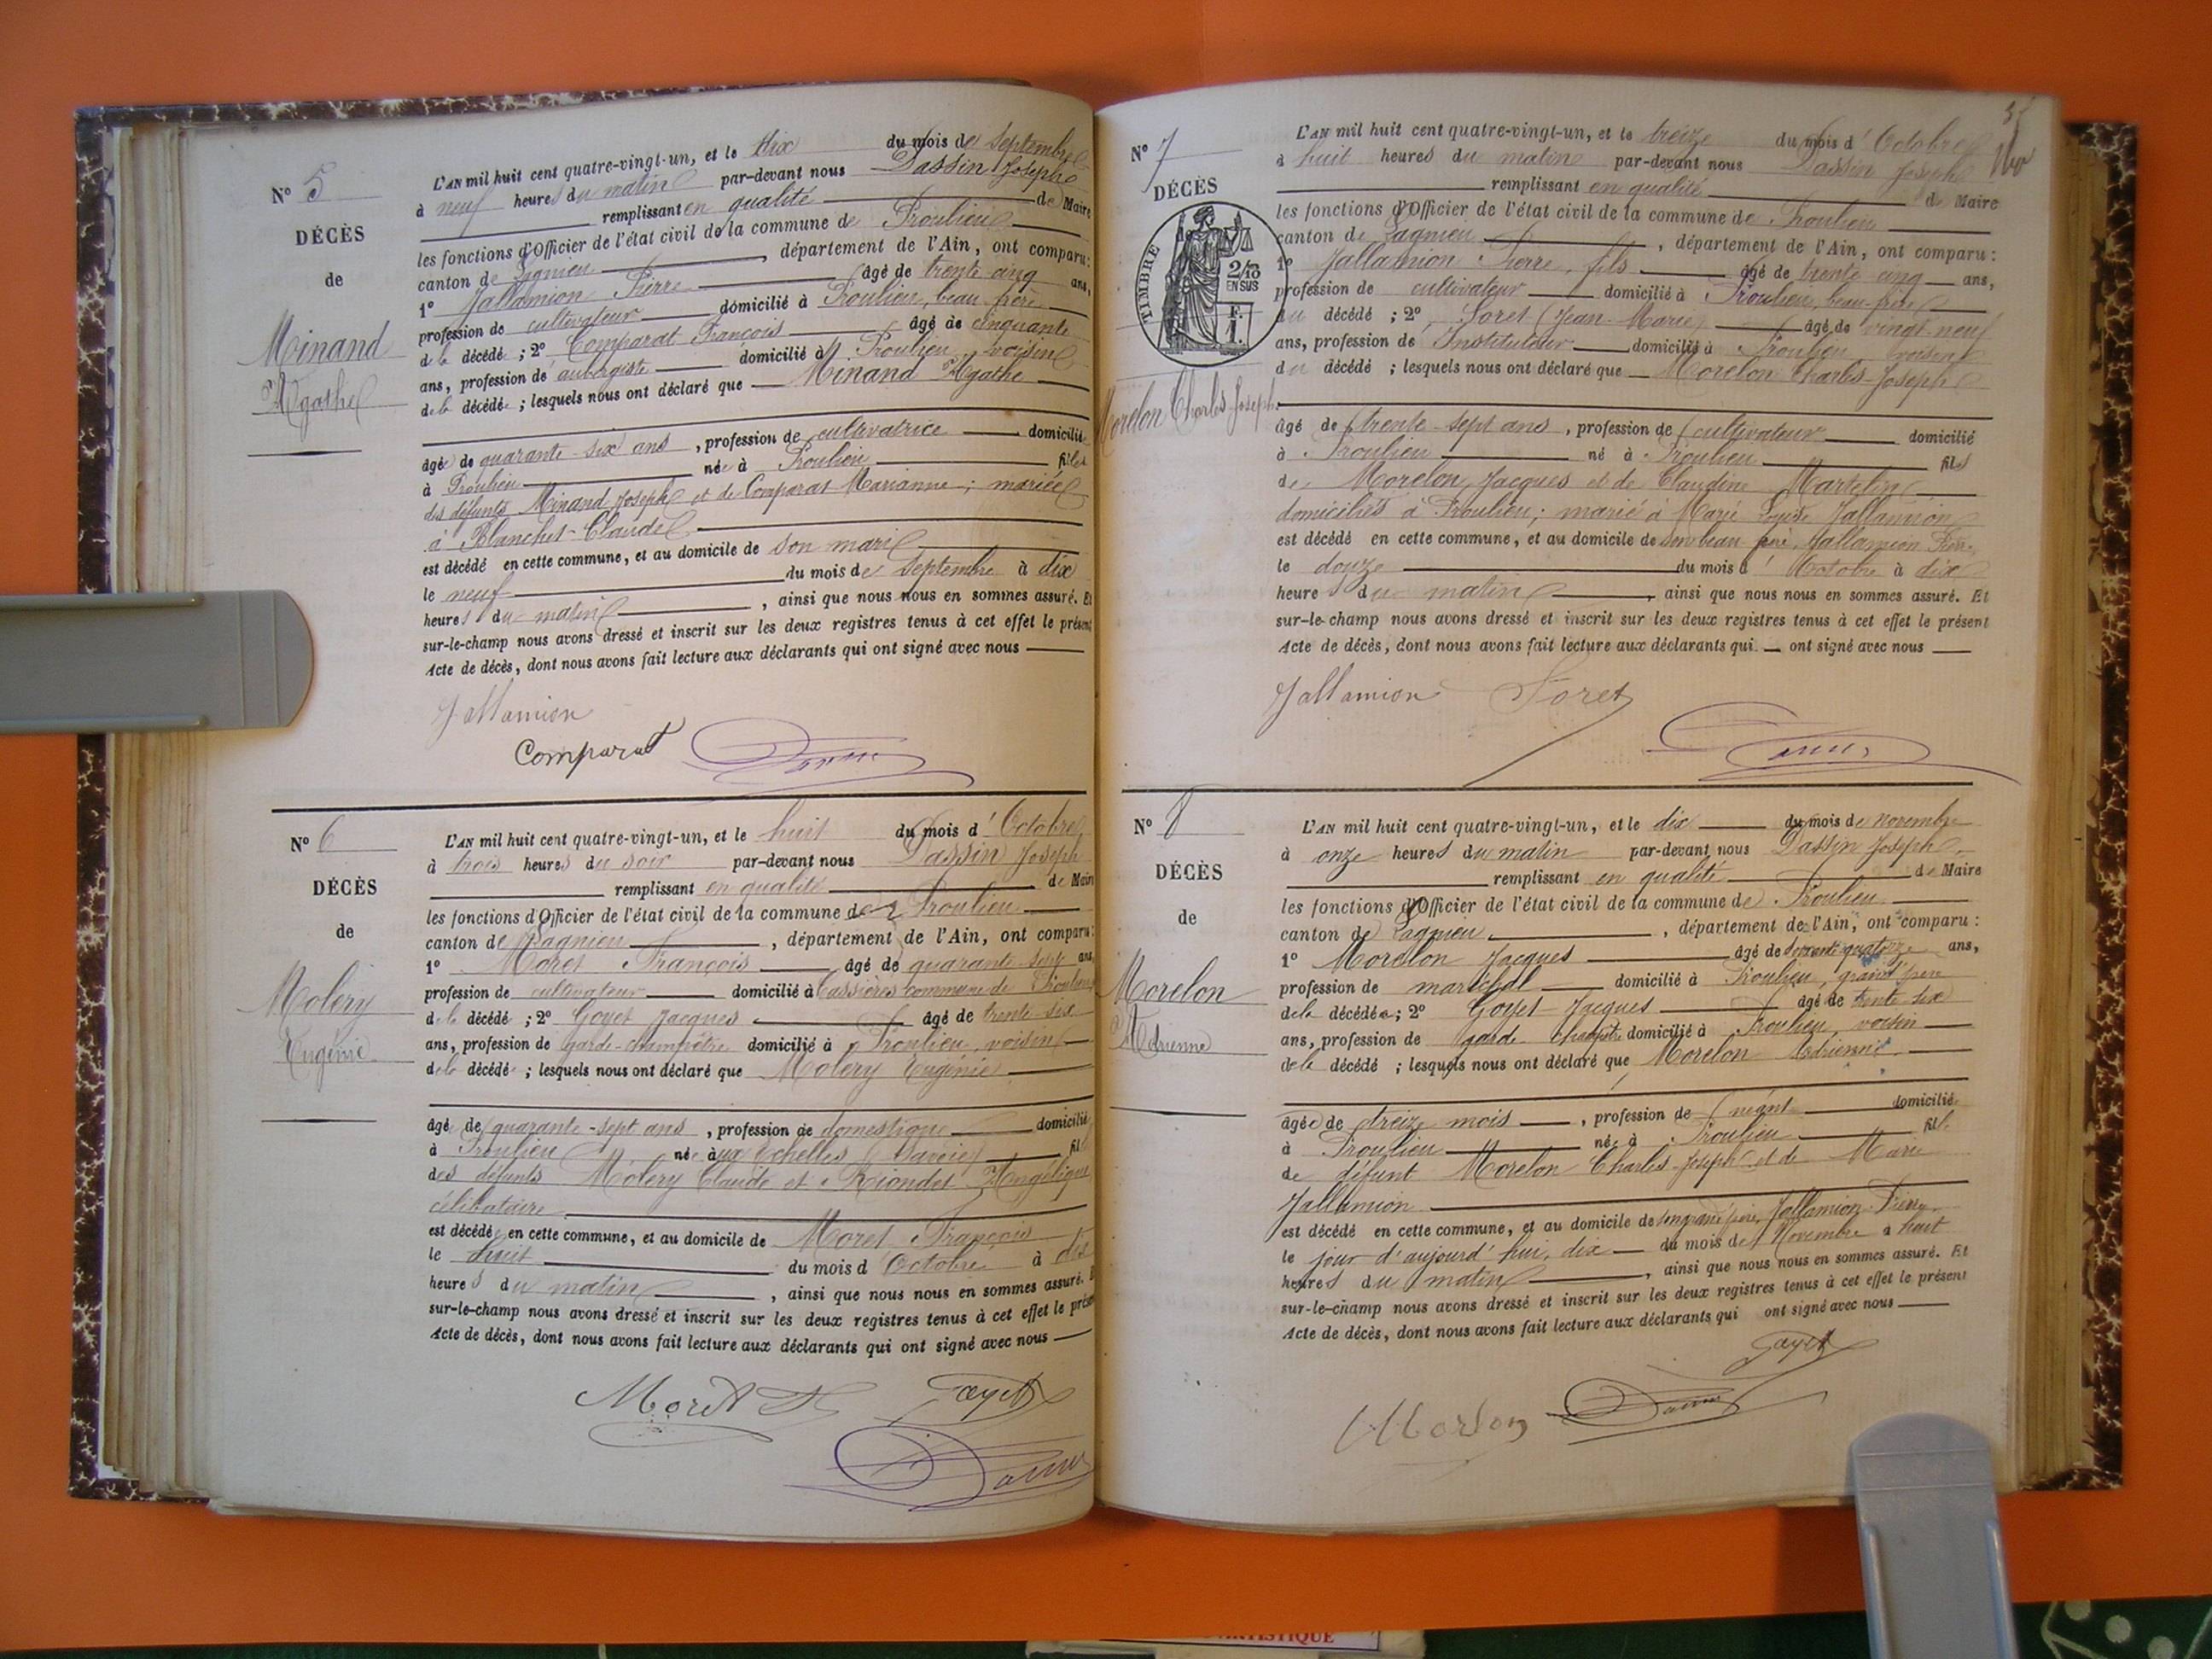 N° 5
DÉCÈS
de
Minand
Agathe
L'AN mil huit cent quatre-vingt-un, et le dix du mois de Septembre
à neuf heures du matin par-devant nous Dassin Joseph
remplissant en qualité de Maire
les fonctions d'Officier de l'état civil de la commune de Proulieu
canton de Lagnieu, département de l'Ain, ont comparu:
1° Jallamion Pierre âgé de trente cinq ans,
profession de cultivateur domicilié à Proulieu, beau-frère
de la décédée; 2° Comparat François âgé de cinquante
ans, profession de aubergiste domicilié à Proulieu, voisin
de la décédée; lesquels nous ont déclaré que Minand Agathe
âgée de quarante-six ans, profession de cultivatrice domiciliée
à Proulieu née à Proulieu fille
des défunts Minand Joseph et de Comparat Marianne; mariée
à Blanchet Claude
est décédé en cette commune, et au domicile de son mari
le neuf du mois de Septembre à dix
heures du matin, ainsi que nous nous en sommes assuré. Et
sur-le-champ nous avons dressé et inscrit sur les deux registres tenus à cet effet le présent
Acte de décès, dont nous avons fait lecture aux déclarants qui ont signé avec nous
Jallamion
Comparat
N° 6
DÉCÈS
de
Molery
Eugénie
L'AN mil huit cent quatre-vingt-un, et le huit du mois d'Octobre
à trois heures du soir par-devant nous Dassin Joseph
remplissant en qualité de Maire
les fonctions d'Officier de l'état civil de la commune de Proulieu
canton de Lagnieu, département de l'Ain, ont comparu:
1° Moret François âgé de quarante-sept ans
profession de cultivateur domicilié à commune de Proulieu
de la décédé; 2° Goyet Jacques âgé de trente six
ans, profession de garde-champêtre domicilié à Proulieu, voisin
de la décédée; lesquels nous ont déclaré que Molery Eugénie
âgé de quarante-sept ans, profession de domestique domicilié
à Proulieu née aux Echelles (Savoie) fille
des défunts Molery Claude et Riondet Angélique
célibataire
est décédée en cette commune, et au domicile de Moret François
le huit du mois d'Octobre à dix
heures du matin, ainsi que nous nous en sommes assuré. Et
sur-le-champ nous avons dressé et inscrit sur les deux registres tenus à cet effet le présent
Acte de décès, dont nous avons fait lecture aux déclarants qui ont signé avec nous
Moret
N° 7
DÉCÈS
TIMBRE
2/10
EN SUS
F.
1.
Morelon Charles-Joseph
L'AN mil huit cent quatre-vingt-un, et le treize du mois d'Octobre
à huit heures du matin par-devant nous Dassin Joseph
remplissant en qualité de Maire
les fonctions d'Officier de l'état civil de la commune de Proulieu
canton de Lagnieu, département de l'Ain, ont comparu:
1° Jallamion Pierre, fils âgé de trente cinq ans,
profession de cultivateur domicilié à Proulieu, beau-frère
du décédé; 2° Soret (Jean-Marie) âgé de vingt-neuf
ans, profession de Instituteur domicilié à Proulieu, voisin
du décédé; lesquels nous ont déclaré que Morelon Charles-Joseph
âgé de trente-sept ans, profession de cultivateur domicilié
à Proulieu né à Proulieu fils
de Morelon Jacques et de Claudine Martelin
domiciliés à Proulieu; marié à Marie Louise Jallamion
est décédé en cette commune, et au domicile de son beau père, Jallamion Pierre
le douze du mois d'Octobre à dix
heures du matin, ainsi que nous nous en sommes assuré. Et
sur-le-champ nous avons dressé et inscrit sur les deux registres tenus à cet effet le présent
Acte de décès, dont nous avons fait lecture aux déclarants qui ont signé avec nous
Jallamion Soret
N° 8
DÉCÈS
de
Morelon
Adrienne
L'AN mil huit cent quatre-vingt-un, et le dix du mois de novembre
à onze heures du matin par-devant nous Dassin Joseph
remplissant en qualité de Maire
les fonctions d'Officier de l'état civil de la commune de Proulieu
canton de Lagnieu, département de l'Ain, ont comparu:
1° Morelon Jacques âgé de soixante quatorze ans,
profession de maréchal domicilié à Proulieu, grand père
de la décédée; 2° Goyet Jacques âgé de trente six
ans, profession de garde champêtre domicilié à Proulieu, voisin
de la décédé; lesquels nous ont déclaré que Morelon Adrienne
âgée de treize mois, profession de néant domicilié
à Proulieu née à Proulieu fille
de défunt Morelon Charles-Joseph et de Marie
Jallamion
est décédé en cette commune, et au domicile de son grand père, Jallamion Pierre
le jour d'aujourd'hui, dix du mois de Novembre à huit
heures du matin, ainsi que nous nous en sommes assuré. Et
sur-le-champ nous avons dressé et inscrit sur les deux registres tenus à cet effet le présent
Acte de décès, dont nous avons fait lecture aux déclarants qui ont signé avec nous
Morlon